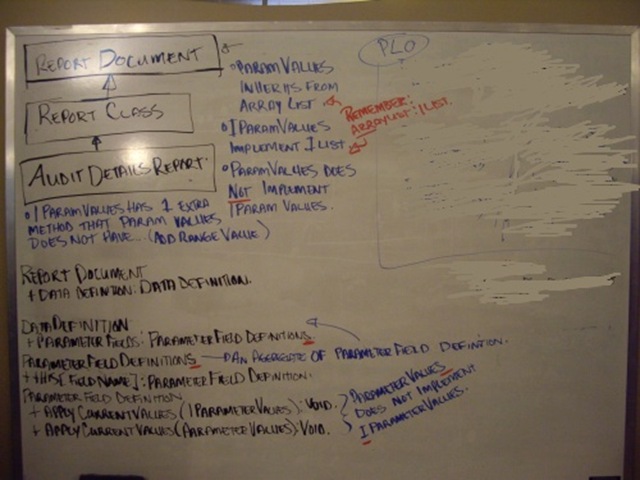 REPORT DOCUMENT
REPORT CLASS
AUDIT DETAILS REPORT.
• PARAMVALUES
INHERITS FROM
ARRAY LIST
• IPARAMVALUES
IMPLEMENT ILIST
• PARAMVALUES DOES
NOT IMPLEMENT
IPARAM VALUES.
REMEMBER:
ARRAYLIST: ILIST.
PLO
• IPARAMVALUES HAS 1 EXTRA
METHOD THAT PARAM VALUES
DOES NOT HAVE... (ADD RANGE VALUE)
REPORT DOCUMENT
+ DATA DEFINITION: DATA DEFINITION.
DATA DEFINITION
+ PARAMETER FIELDS: PARAMETER FIELD DEFINITIONS.
PARAMETER FIELD DEFINITIONS → AN AGGREGATE OF PARAMETER FIELD DEFINITION.
+ THIS[FIELDNAME]: PARAMETER FIELD DEFINITION.
PARAMETER FIELD DEFINITION
+ APPLY CURRENT VALUES (IPARAMETERVALUES): VOID.
+ APPLY CURRENT VALUES (PARAMETERVALUES): VOID.
PARAMETERVALUES
DOES NOT IMPLEMENT
IPARAMETERVALUES.